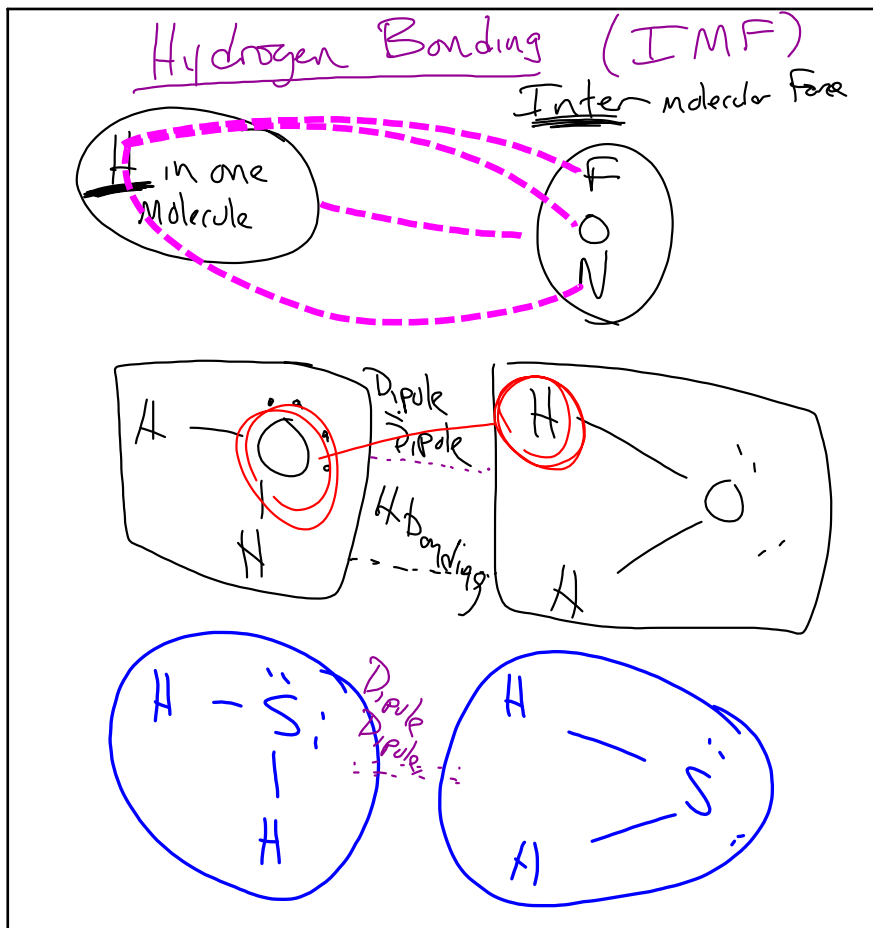 Hydrogen Bonding (IMF)
Inter molecular Force
H in one
Molecule
F
O
N
H O
H
Dipole
Dipole
H Bonding
H
O
H
H S
H
Dipole
Dipole
H
S
H